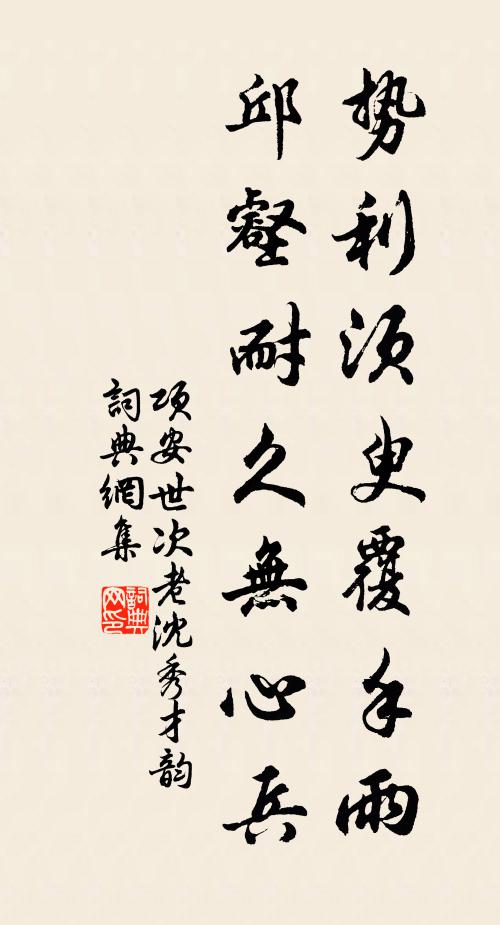 势利须臾覆手雨
邱壑耐久無心兵
项安世次老沈秀才韵
詞典網集
詞典网印